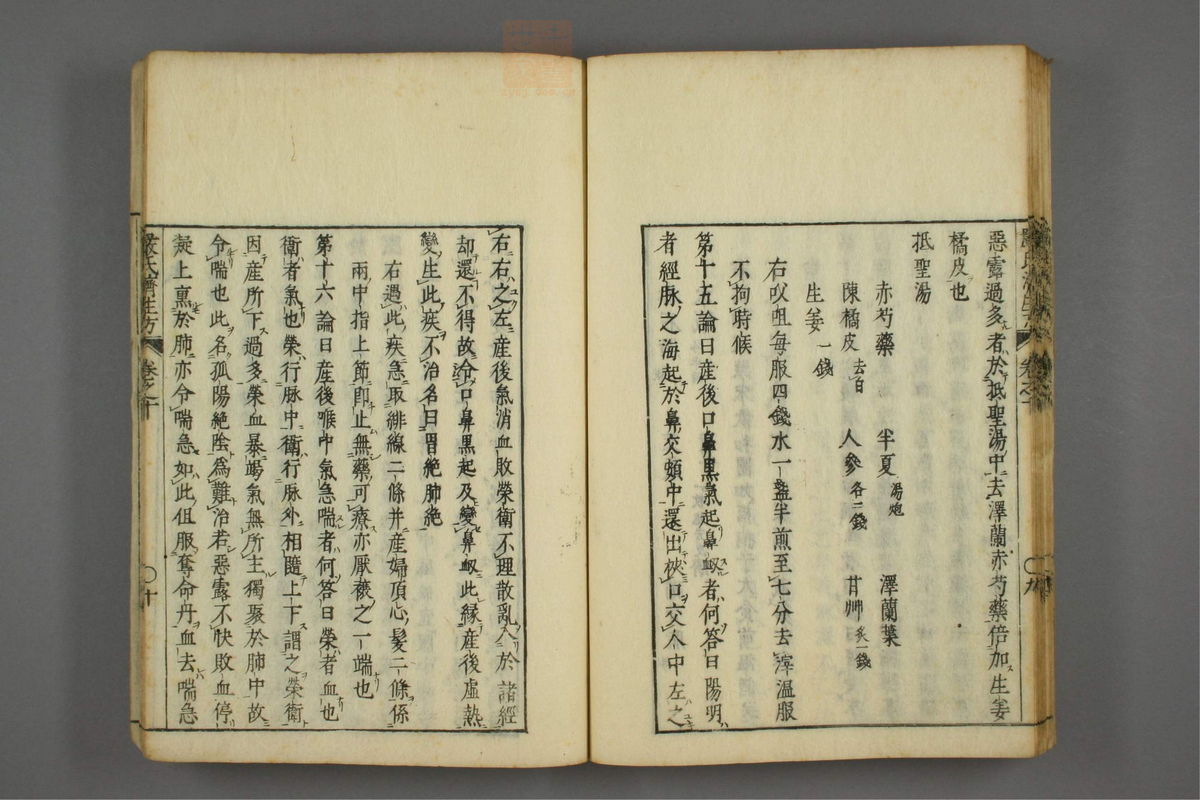 惡露過多者於抵聖湯中去澤蘭赤芍藥倍加生姜
橘皮也
抵聖湯
赤芍藥 半夏湯炮 澤蘭葉
陳橘皮去白 人參各二錢 甘艸炙一錢
生姜一錢
右㕮咀每服四錢水一盞半煎至七分去滓溫服
不拘時候
第十五論曰産後口鼻黒氣起鼻衂者何答曰陽明
者經脉之海起於鼻交頞中還出挾口交人中左之
右右之左産後氣消血敗榮衛不理散亂入於諸經
却還不得故令口鼻黒起及變鼻衂此縁産後虛熱
變生此疾不治名曰胃絶肺絶
右遇此疾急取緋線二條并産婦頂心髮二條係
兩中指上節即止無藥可療亦厭禳之一端也
第十六論曰産後喉中氣急喘者何答曰榮者血也
衛者氣也榮行脉中衛行脉外相隨上下謂之榮衛
因産所下過多榮血暴竭氣無所主獨聚於肺中故
令喘也此名孤陽絶陰爲難治若惡露不快敗血停
凝上熏於肺亦令喘急如此伹服奪命丹血去喘急
嚴氏濟生方 卷之十 〇十